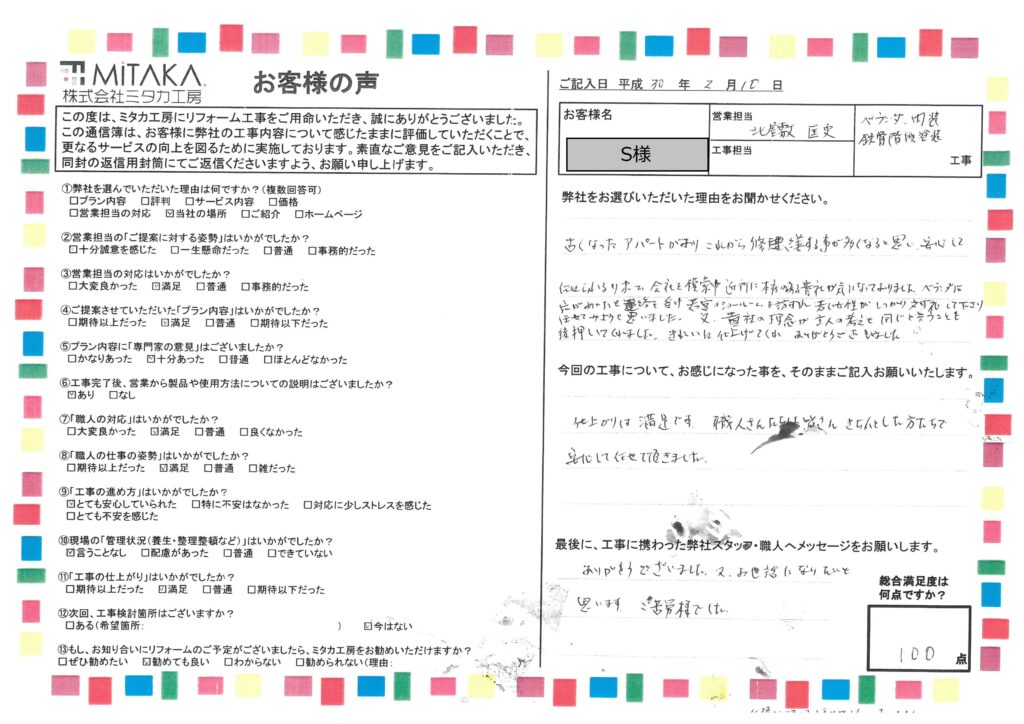 MiTAKA
株式会社ミタカ工房
お客様の声
この度は、ミタカ工房にリフォーム工事をご用命いただき、誠にありがとうございました。
この通信簿は、お客様に弊社の工事内容について感じたままに評価していただくことで、
更なるサービスの向上を図るために実施しております。素直なご意見をご記入いただき、
同封の返信用封筒にてご返信くださいますよう、お願い申し上げます。
①弊社を選んでいただいた理由は何ですか?(複数回答可)
□プラン内容 □評判 □サービス内容 □価格
□営業担当の対応 ☑当社の場所 □ご紹介 □ホームページ
②営業担当の「ご提案に対する姿勢」はいかがでしたか?
☑十分誠意を感じた □一生懸命だった □普通 □事務的だった
③営業担当の対応はいかがでしたか?
□大変良かった ☑満足 □普通 □事務的だった
④ご提案させていただいた「プラン内容」はいかがでしたか?
□期待以上だった ☑満足 □普通 □期待以下だった
⑤プラン内容に「専門家の意見」はございましたか?
□かなりあった ☑十分あった □普通 □ほとんどなかった
⑥工事完了後、営業から製品や使用方法についての説明はございましたか?
☑あり □なし
⑦「職人の対応」はいかがでしたか?
□大変良かった ☑満足 □普通 □良くなかった
⑧「職人の仕事の姿勢」はいかがでしたか?
□期待以上だった ☑満足 □普通 □雑だった
⑨「工事の進め方」はいかがでしたか?
☑とても安心していられた □特に不安はなかった □対応に少しストレスを感じた
□とても不安を感じた
⑩現場の「管理状況(養生・整理整頓など)」はいかがでしたか?
☑言うことなし □配慮があった □普通 □できていない
⑪「工事の仕上がり」はいかがでしたか?
□期待以上だった ☑満足 □普通 □期待以下だった
⑫次回、工事検討箇所はございますか?
□ある(希望箇所: ) ☑今はない
⑬もし、お知り合いにリフォームのご予定がございましたら、ミタカ工房をお勧めいただけますか?
□ぜひ勧めたい ☑勧めても良い □わからない □勧められない(理由:
ご記入日 平成 30 年 2 月 18 日
お客様名
S様
営業担当
北屋敷 匡史
工事担当
ベランダ、内装
鉄骨階段塗装
工事
弊社をお選びいただいた理由をお聞かせください。
古くなったアパートがあり これから修理する事が多くなると思い 安心して
任せられるリホーム会社を模索中 近所に 貴社が気になっておりました
任せてみようと思いました。又、貴社の理念が主人の考えと同じと言うことも
後押してくれました。きれいに仕上げてくれ ありがとうございました
今回の工事について、お感じになった事を、そのままご記入お願いいたします。
仕上がりは満足です 職人さん 皆さん きちんとした方たちで
安心して任せて頂きました。
最後に、工事に携わった弊社スタッフ・職人へメッセージをお願いします。
ありがとうございました。又、お世話になりたいと
思います ご苦労様でした。
総合満足度は
何点ですか?
100 点